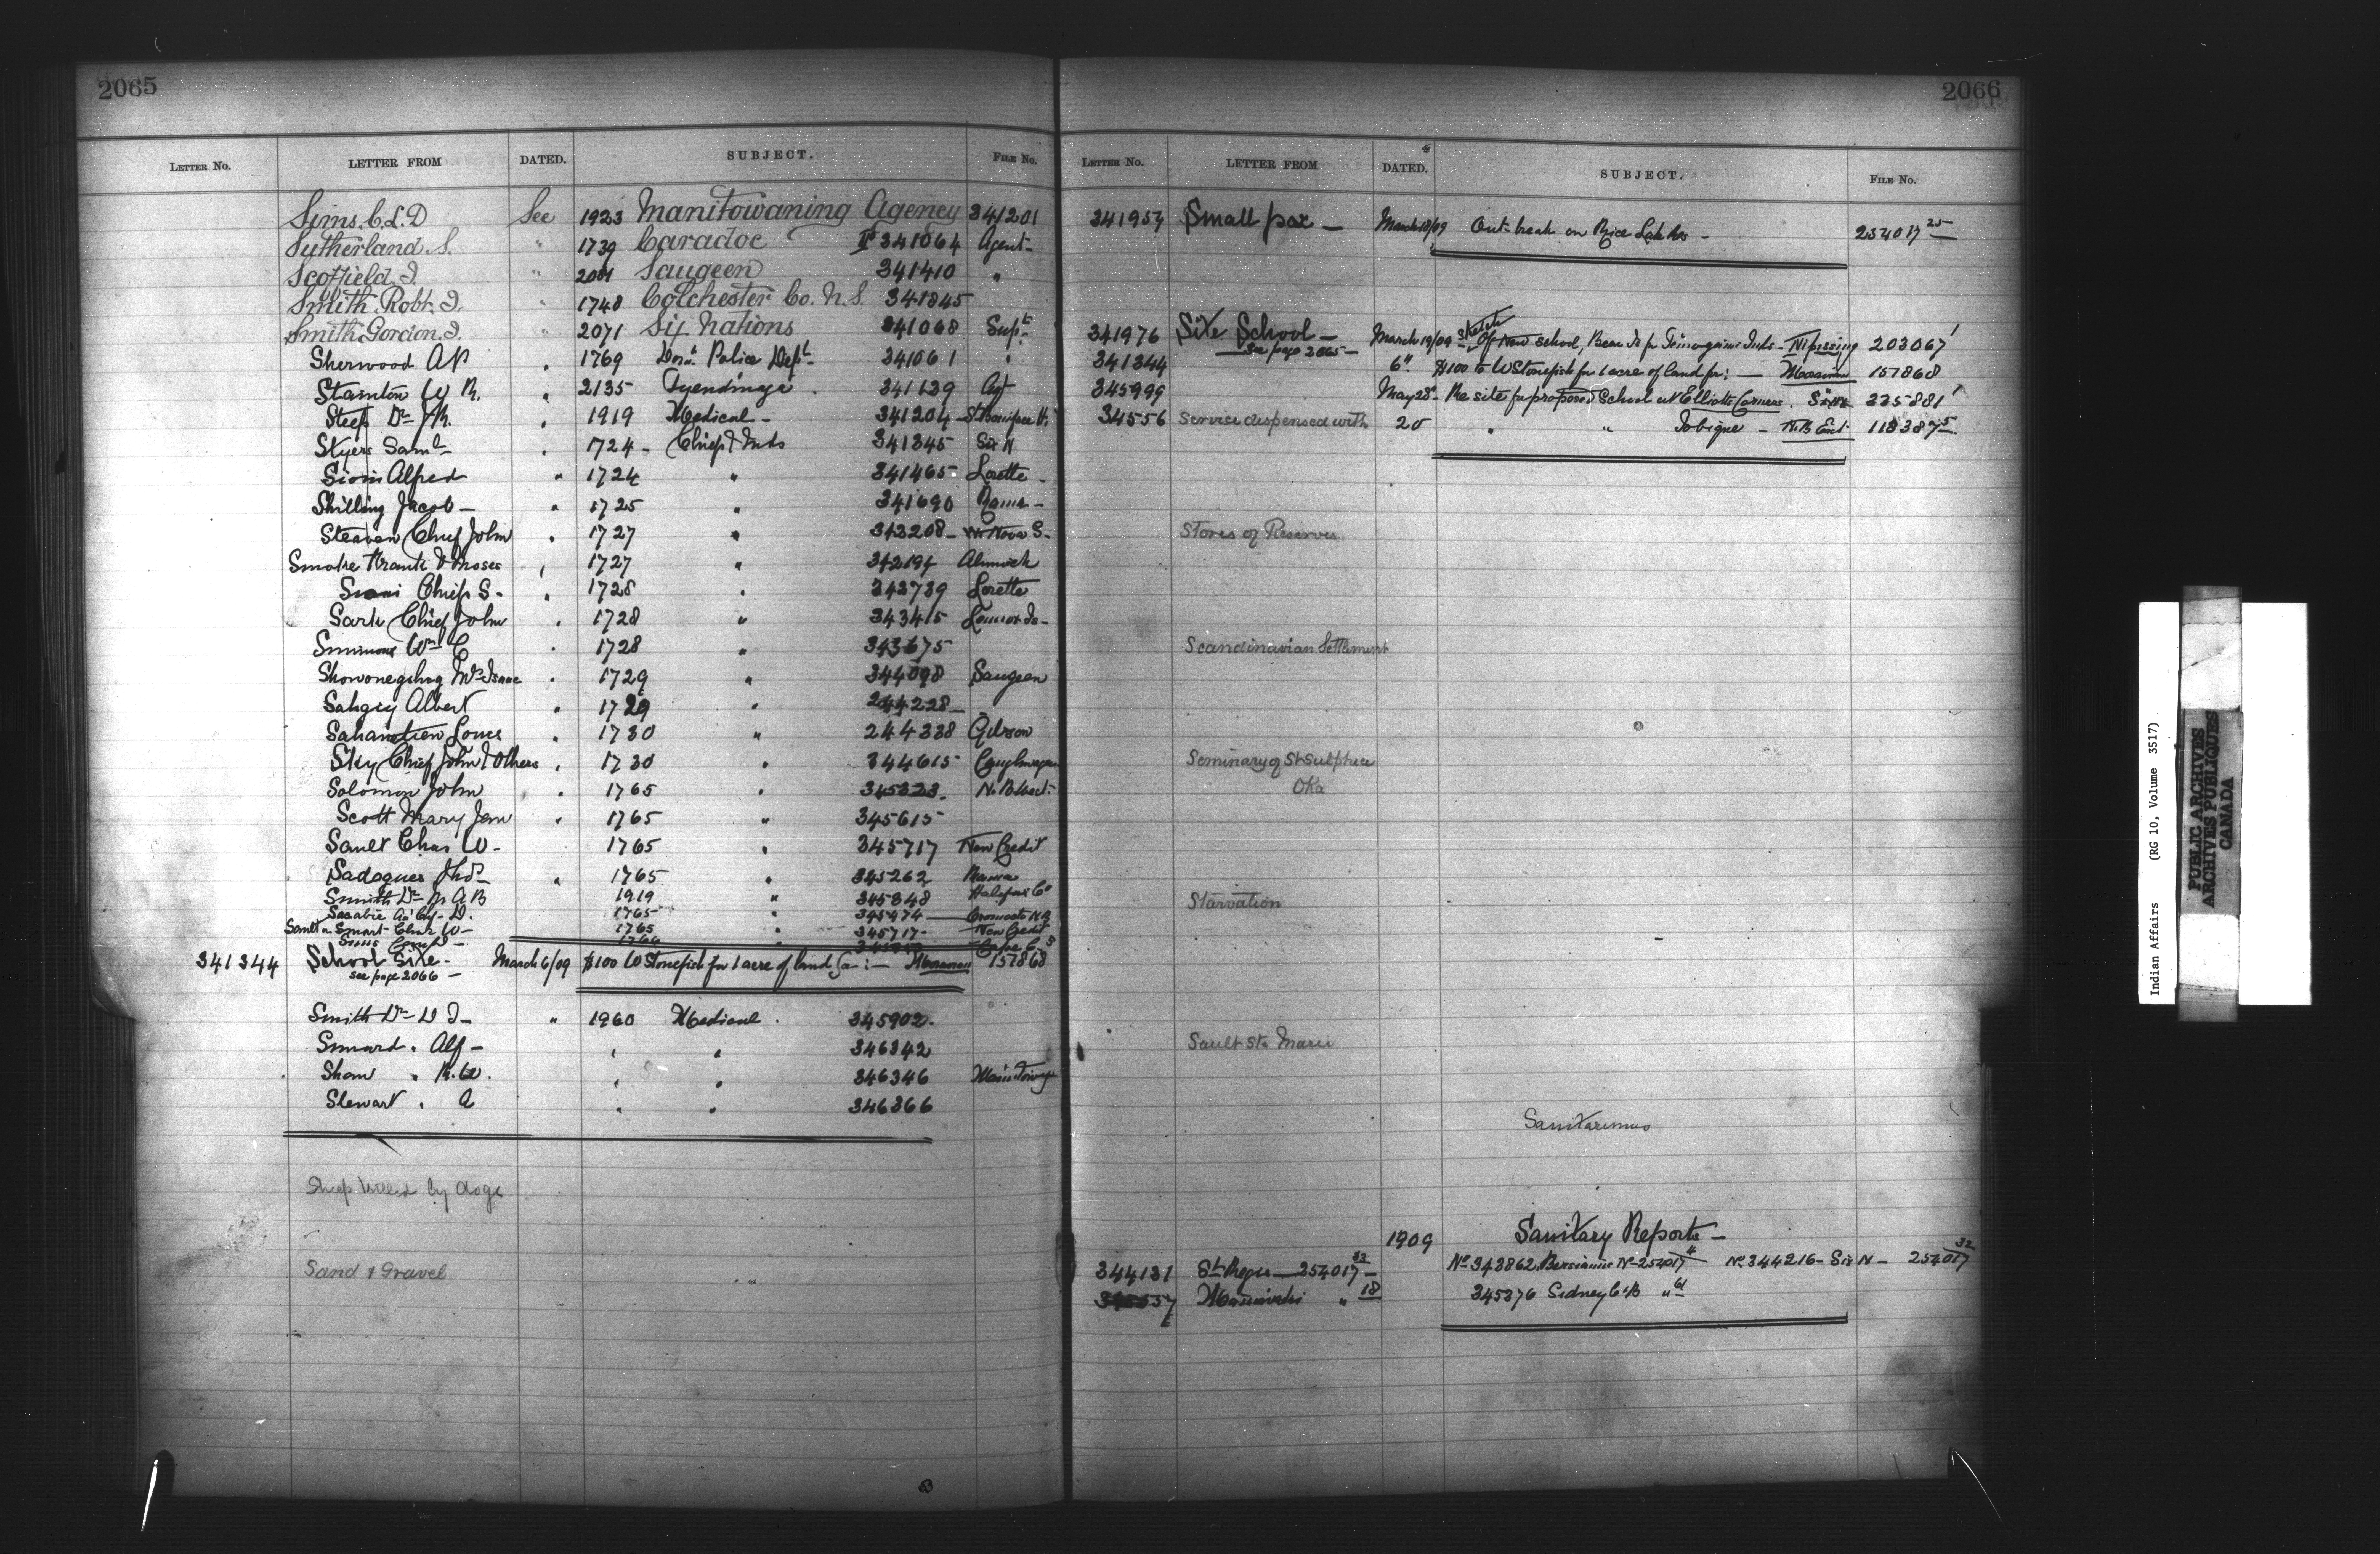 2065
LETTER NO. LETTER FROM DATED. SUBJECT. FILE NO.
Sims. C. L. D See 1923 Manitowaning Agency 341201
Sutherland. S. " 1739 Caradoc 341064 Agent-
Scoffield. J. " 2081 Saugeen 341410 "
Smith Robt. J. " 1748 Colchester Co. N. S. 341845
Smith Gordon. J. " 2071 Six Nations 341068 Supt.
Sherwood A P " 1769 Dom. Police Dept. 341061 "
Stainton W R. " 2135 Tyendinaga 341139 Agt
Steep Dr " 1919 Medical - 341204 St Boniface H.
Styers Saml - " 1724 - Chief & Inds 341345 Six N
Sioui Alfred " 1724 " 341465 Lorette -
Shilling Jacob - " 1725 " 341690 Rama -
Steaven Chief John " 1727 " 343208 - Nova S-
Smoke & Moses " 1727 " 342194 Alnwick
Sioui Chief S- " 1728 " 342739 Lorette
Sark Chief John " 1728 " 343415 Lennox Is-
Simmons Wm C " 1728 " 343675
Showonegshig Mrs Isaac " 1729 " 344098 Saugeen
Sahgiy Albert " 1729 " 244228 -
Sahanatien Louis " 1730 " 244338 Gibson
Sky Chief John & Others " 1730 " 344615 Caughnawaga
Solomon John " 1765 " 345323.
Scott Mary Jem " 1765 " 345615
Sault Chas W - 1765 " 345717 New Credit
Sadoques Thos " 1765 " 345262
Smith Dr M A B 1919 " 345348 Halifax Co
1765 345474 Oromocto N.B
Sault or Smart Chas W - 1765 " 345717 - New Credit
341344 School Site - March 6/09 $100 W Stonefish for 1 acre of land for :- Moravian 157868
see page 2066 -
Smith Dr D J - " 1960 Medical 345902.
Alf - " " 346342
Shaw " R. W. " " 346346
Stewart " A " " 346366
Sheep killed by dogs
Sand & Gravel
2066
LETTER NO. LETTER FROM DATED. SUBJECT. FILE NO.
341957 Small pox - March 18/09 Out-break on Rice Lake Res - 254017 25
341976 Site School - March 19/09 sketch Of New school, Bear Is for Temogaimi Inds - Nipissing 203067 1
See page 2065 -
341344 6" $100 to W Stonefish for 1 acre of land for: - Moravian 157868
345999 May 28 - Re site for proposed School at Elliotts Corners. 335881 1
34556 Service dispensed with 20 " " Tobique - N.B East 118387 5
Stores of Reserves
Scandinavian Settlement
Seminary of St Sulpice
Oka
Starvation
Sault Ste Marie
Sanitariums
1909 Sanitary Reports -
344131 St Regis - 254017 33 No 343862 Bersimis No 254017 4 No 344216 - Six N - 254017 32
Maniwaki " 18 345376 Sidney C.B " 61
Indian Affairs (RG 10, Volume 3517)
PUBLIC ARCHIVES
ARCHIVES PUBLIQUES
CANADA